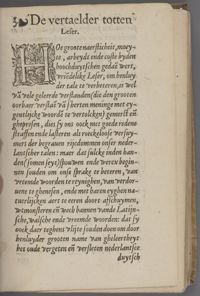 De vertaelder totten
Leser.
HOe groote naersticheit, moey-
te, arbeydt ende coste by den
hoochduytschen gedaẽ wert,
vriẽdelijcke Leser, om
der tale te verbeteren, is wel
vã vele geleerde verstandẽ (die den grooten
oorbaer verstaẽ vã therten meninge met ey-
gentlijcke woordẽ te vertolckẽ) gemerct eñ
gepresen, dies sy oock met goede redene
straffen ende lasteren alsulcke versuy-
mers der begraven rijcdommen onser neder-
lantscher talen: maer dat sulcke inden han-
den (somen seyt) spouwen ende veten begin-
nen souden om onse sprake te beteren, van
vreemde woorden te reynighen, van verdor-
vene te ghenesen, ende met haren eyghen na-
tuerlijcken aert te eeren doort afschuymen,
wtmonsteren ende wech bannen vande Latijn-
sche, walsche ende vreemde woorden: dat sy
oock daer teghens vlijte souden doen om door
henluyder grooten name van gheleertheyt
het oude vergeten eñ versleten nederlantsce
duytsch